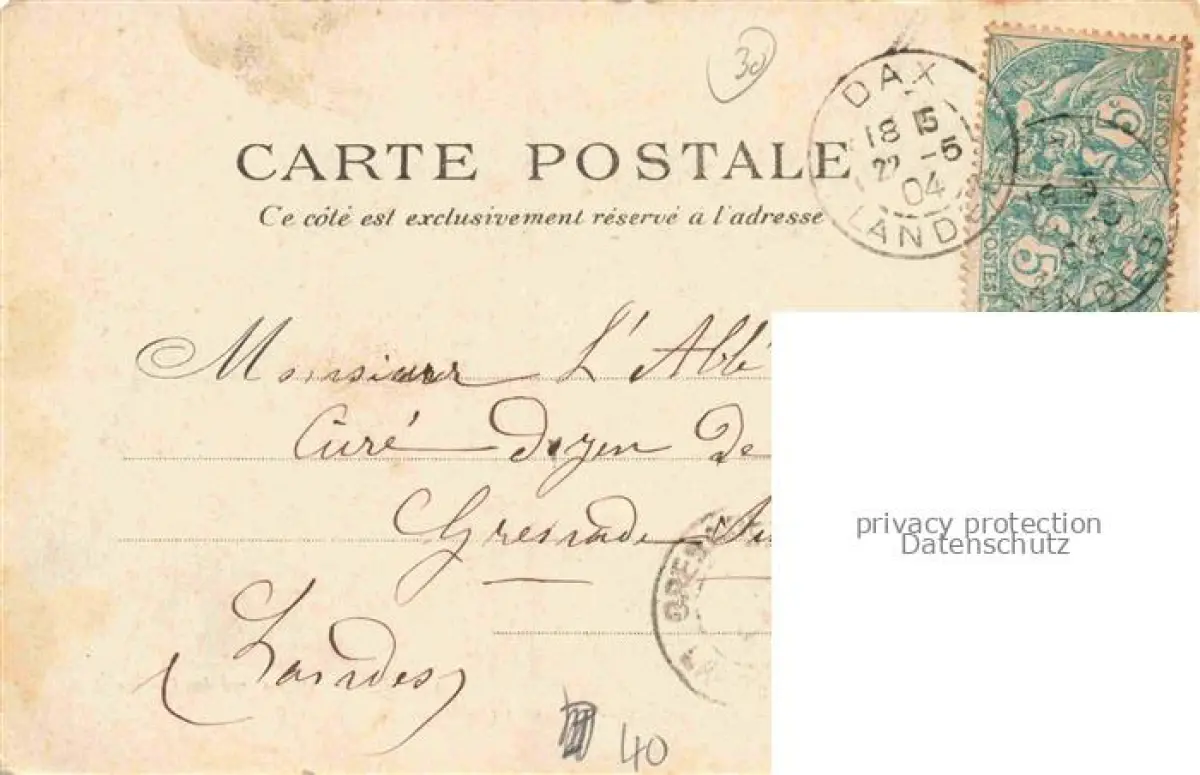 30
CARTE POSTALE
Ce côté est exclusivement réservé à l'adresse
DAX
18 15
22 -5
04
LANDES
5c
POSTES
5
Monsieur L'Abbé
Curé doyen de
Grenade
(Landes)
GRE
40
privacy protection
Datenschutz